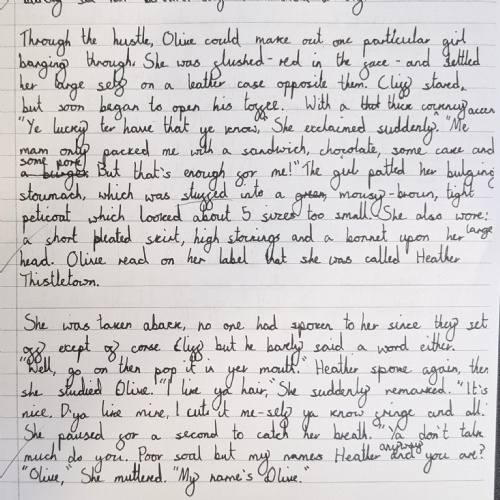 Through the hustle, Olive could make out one particular girl
barging through. She was flushed-red in the face - and settled
her large self on a leather case opposite them. Cliff stared,
but soon began to open his toffee. With a thot thick corneny accen
"Ye lucky ter have that ye know," She exclaimed suddenly. "Me
mam only packed me with a sandwich, chocolate, some cake and
some pork
a burger. But that's enough for me!" The girl patted her bulging
stoumach, which was stuffed into a green, mousy-broun, tight
peticoat which looked about 5 sizes too small. She also wore:
a short pleated skist, high stockings and a bonnet upon her large
head. Olive read on her label that she was called Heather
Thistletown.
She was taken aback, no one had spoken to her since they set
off exept of corse Cliff but he barely said a word either.
"Well, go on then pop it in yer mouth." Heather spoke again, then
she studied Olive. "I like ya hair," She suddenly remarked. "It's
nice. D'ya like mine, I cuts it me-self ya know fringe and all.
She paused for a second to catch her breath. "Ya don't talk
much do you. Poor soal but my names Heather anyway and you are?
"Olive," She muttered. "My name's Olive."